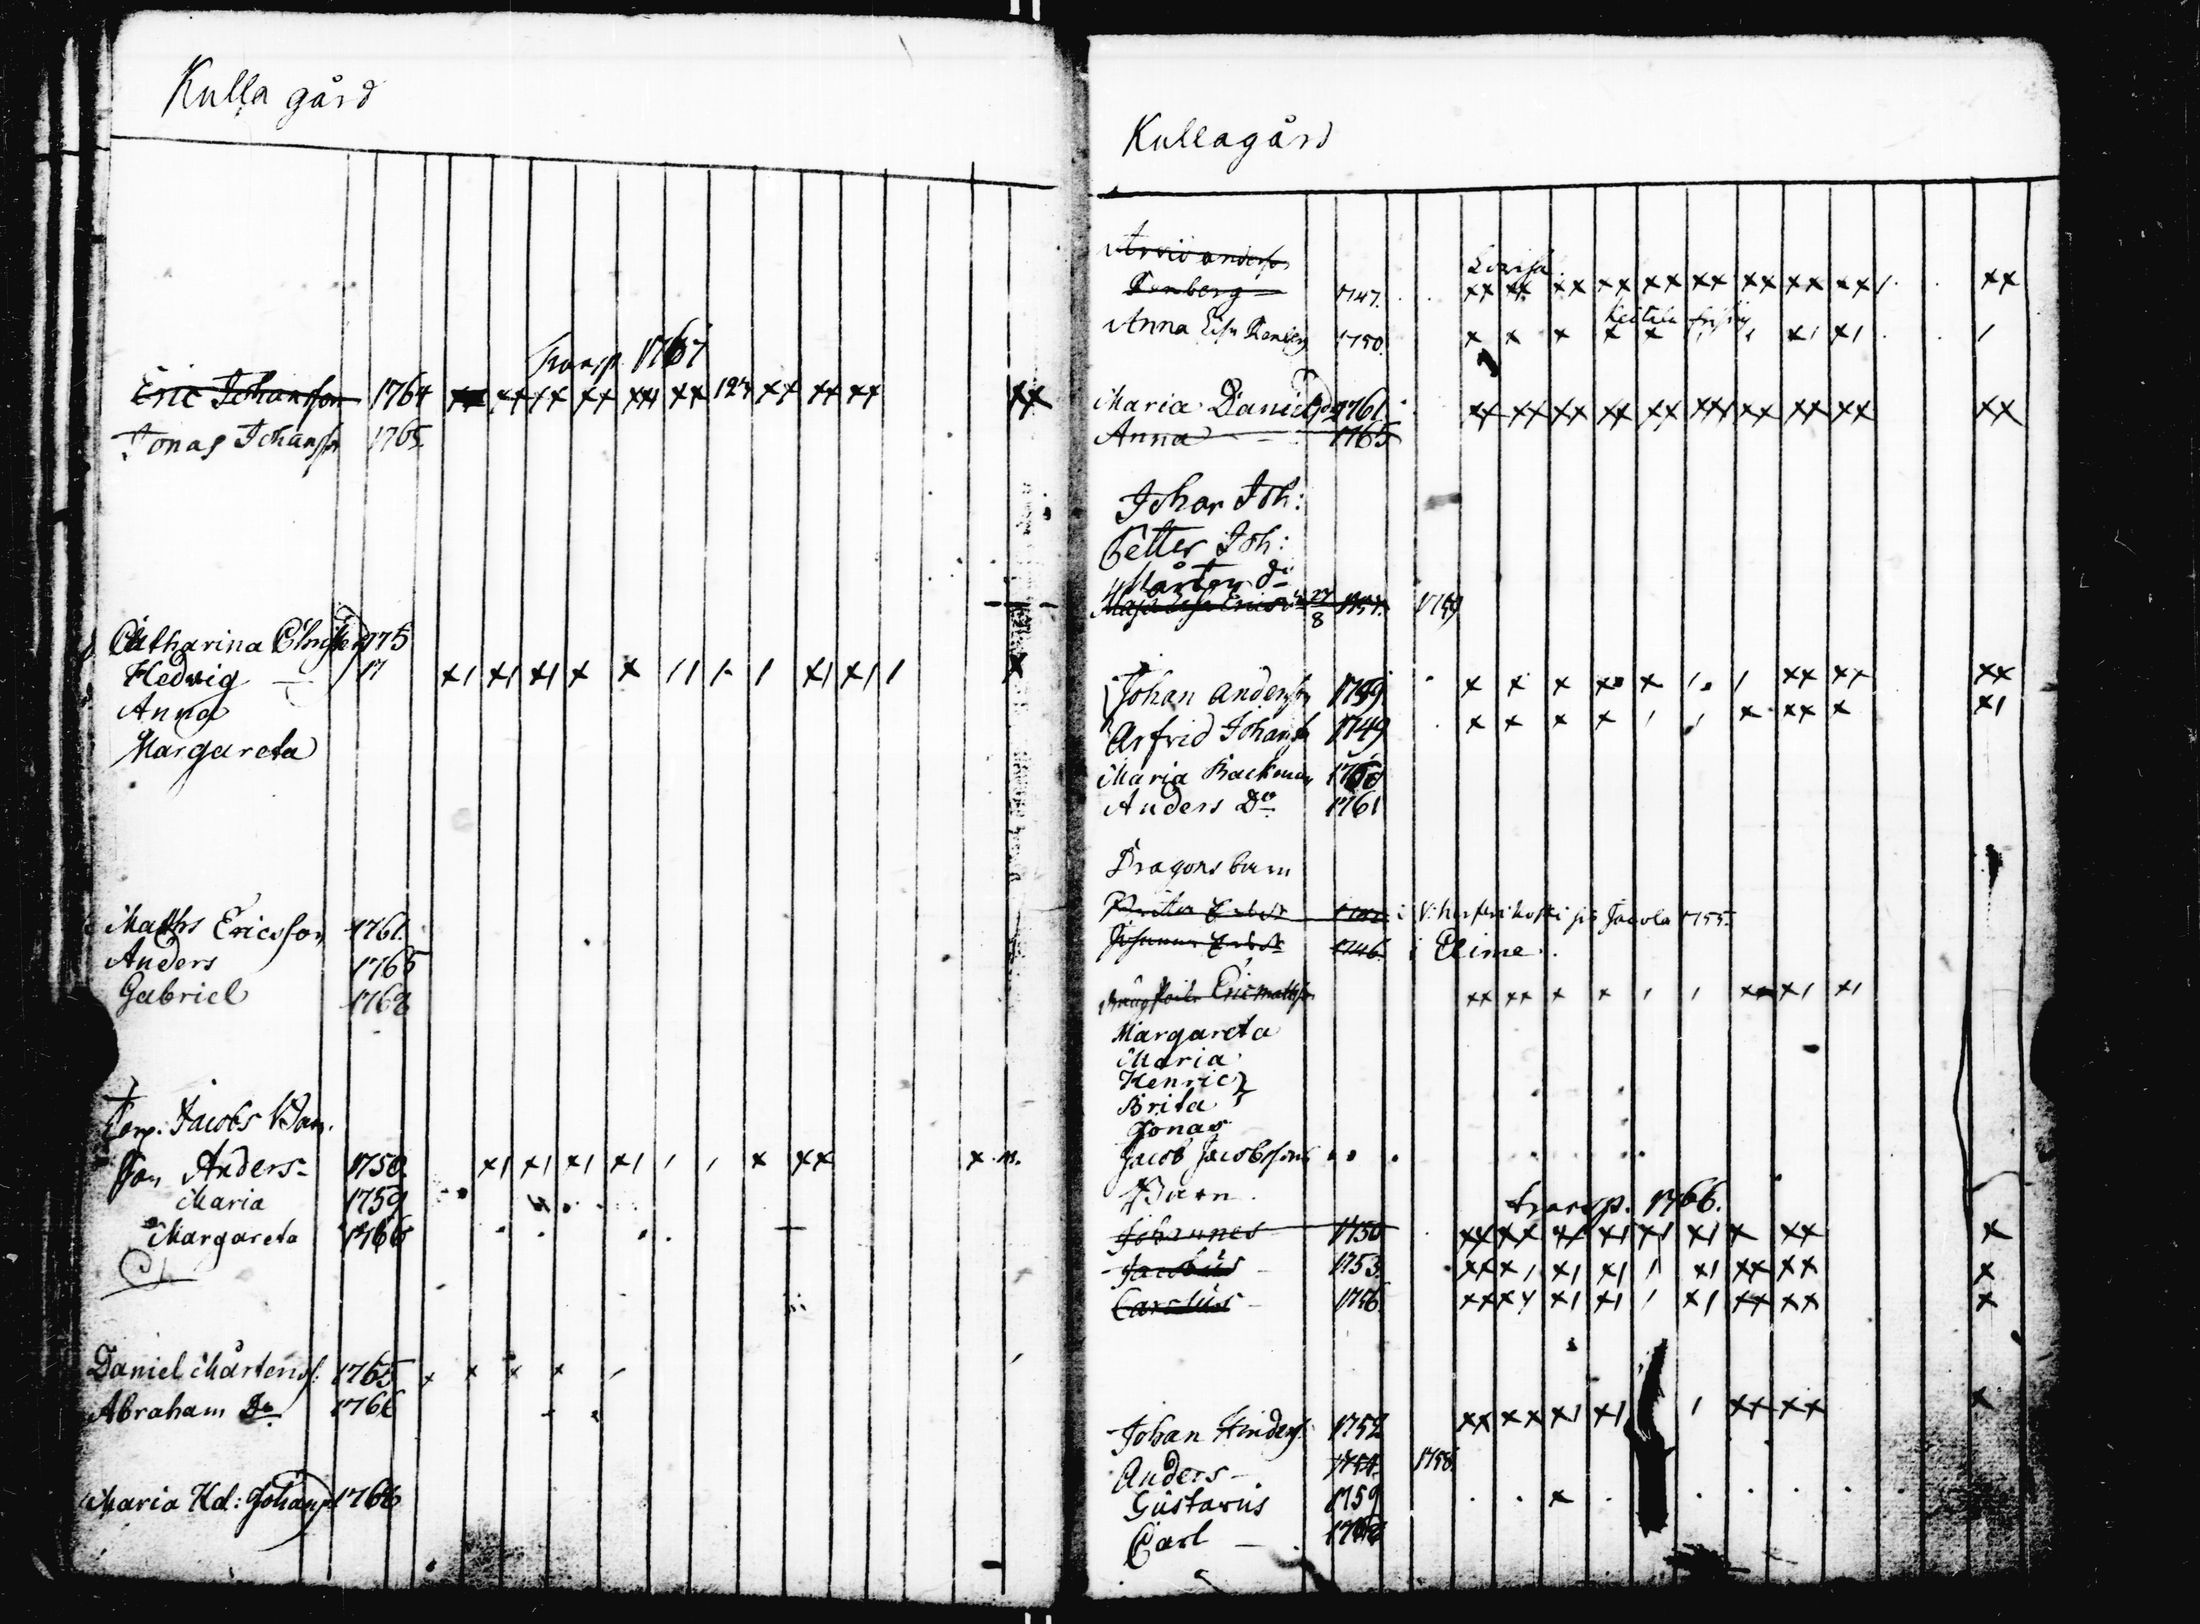 Kulla gård
Transp. 1767
Eric Johansson 1764 xx xx xx xx xx 124 xx xx xx xx
Jonas Johanss 1765
Catharina 175
Hedwig — 17 x1 x1 x1 x x 11 1 1 x1 x1 1 x
Anna
Margareta
Maths Ericsson 1761.
Anders 1765
Gabriel 1768
Corp. Jacobs Barn.
Jon Anders- 1750 x1 x1 x1 x1 1 1 x xx x
Maria 1759
Margareta 1766
Daniel Mårtenss: 1765 x x x x 1
Abraham Do 1766
Maria Hd: Johans 1766
Kullagård
Arvid anderss
Renberg 1747. xx xx xx xx xx xx xx xx xx 1 xx
Anna 1750. x x x x x 1 1 x1 x1 1
Maria Daniels 1761. xx xx xx xx xx xx xx xx xx xx
Anna — 1765
Johan Joh:
Petter Joh:
Mårten do
27/8 1757. 1759
Johan anderss 1759 x x x x x 1 1 xx xx xx
Arfrid Johans 1749 x x x x 1 1 x xx x x1
Maria Backman 1760
Anders Do 1761
Dragons barn
1755.
1746. i Elime.
Eric Mattss xx xx x x 1 1 xx x1 x1
Margareta
Maria
Henric
Brita
Jonas
Jacob Jacobssons
Barn.
transp. 1766.
Johannes 1750 xx xx x1 x1 x1 x1 x xx x
Jacobus — 1753. xx x1 x1 x1 1 x1 xx xx x
Carolus — 1756 xx x1 x1 x1 1 x1 xx xx x
Johan Hinders: 1752 xx xx x1 x1 1 xx xx x
Anders — 1754. 1758.
Gustavus 1759 x
Carl —